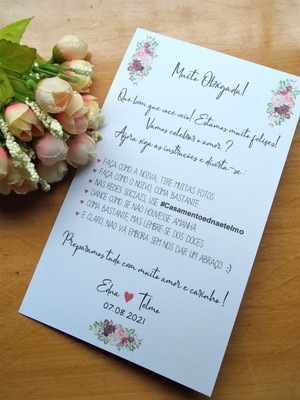 Muito Obrigada!
Que bom que você veio! Estamos muito felizes!
Vamos celebrar o amor?
Agora siga as instruções e divirta-se:
FAÇA COMO A NOIVA, TIRE MUITAS FOTOS
FAÇA COMO O NOIVO, COMA BASTANTE
NAS REDES SOCIAIS, USE #Casamentoednaetelmo
DANCE COMO SE NÃO HOUVESSE AMANHÃ
COMA BASTANTE, MAS LEMBRE-SE DOS DOCES
E CLARO, NÃO VÁ EMBORA SEM NOS DAR UM ABRAÇO :)
Preparamos tudo com muito amor e carinho!
Edna ♥ Telmo
07.08.2021